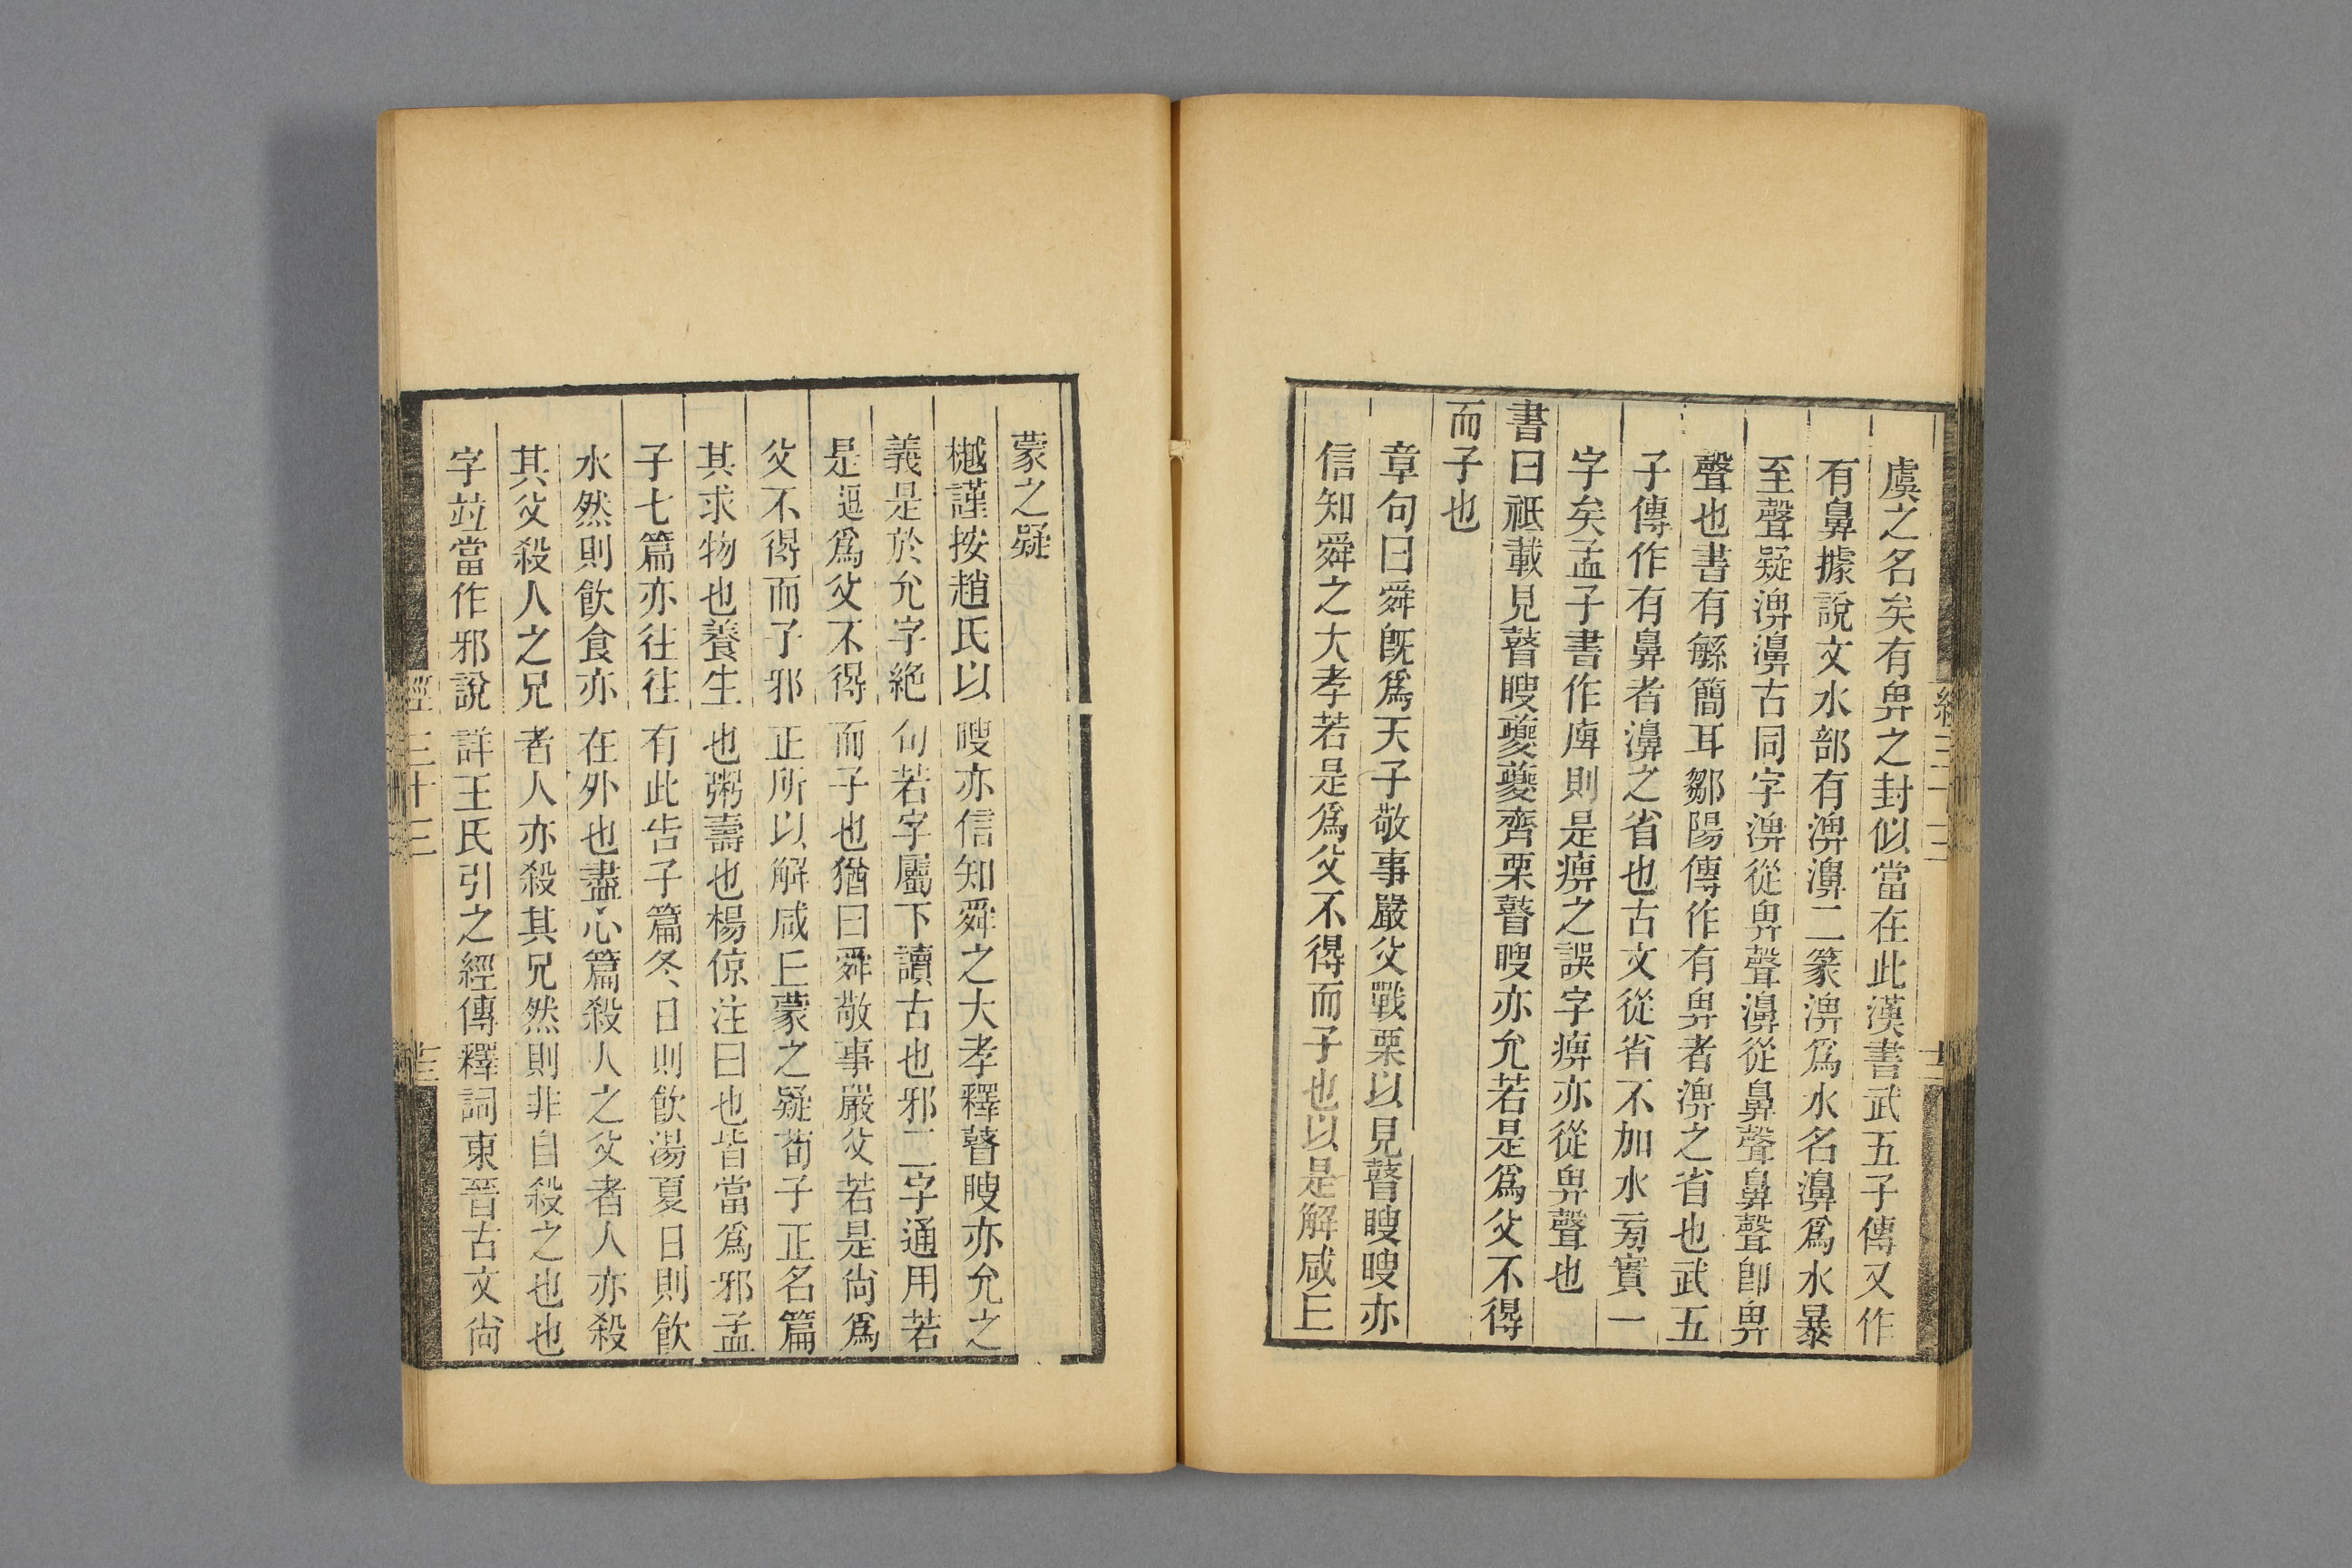 虞之名矣有畀之封似當在此漢書武五子傳又作
有鼻據說文水部有淠濞二篆淠爲水名濞爲水暴
至聲疑淠濞古同字淠從畀聲濞從鼻聲鼻聲卽畀
聲也書有緐簡耳鄒陽傳作有畀者淠之省也武五
子傳作有鼻者濞之省也古文從省不加水㫄實一
字矣孟子書作庳則是痹之誤字痹亦從畀聲也
書曰祗載見瞽瞍夔夔齊栗瞽瞍亦允若是爲父不得
而子也
章句曰舜旣爲天子敬事嚴父戰栗以見瞽瞍瞍亦
信知舜之大孝若是爲父不得而子也以是解咸丘
蒙之疑
樾謹按趙氏以瞍亦信知舜之大孝釋瞽瞍亦允之
義是於允字絶句若字屬下讀古也邪二字通用若
是逗爲父不得而子也猶曰舜敬事嚴父若是尙爲
父不得而子邪正所以解咸丘蒙之疑荀子正名篇
其求物也養生也粥壽也楊倞注曰也皆當爲邪孟
子七篇亦往往有此告子篇冬日則飮湯夏日則飮
水然則飮食亦在外也盡心篇殺人之父者人亦殺
其父殺人之兄者人亦殺其兄然則非自殺之也也
字竝當作邪說詳王氏引之經傳釋詞東晉古文尙
經三十三